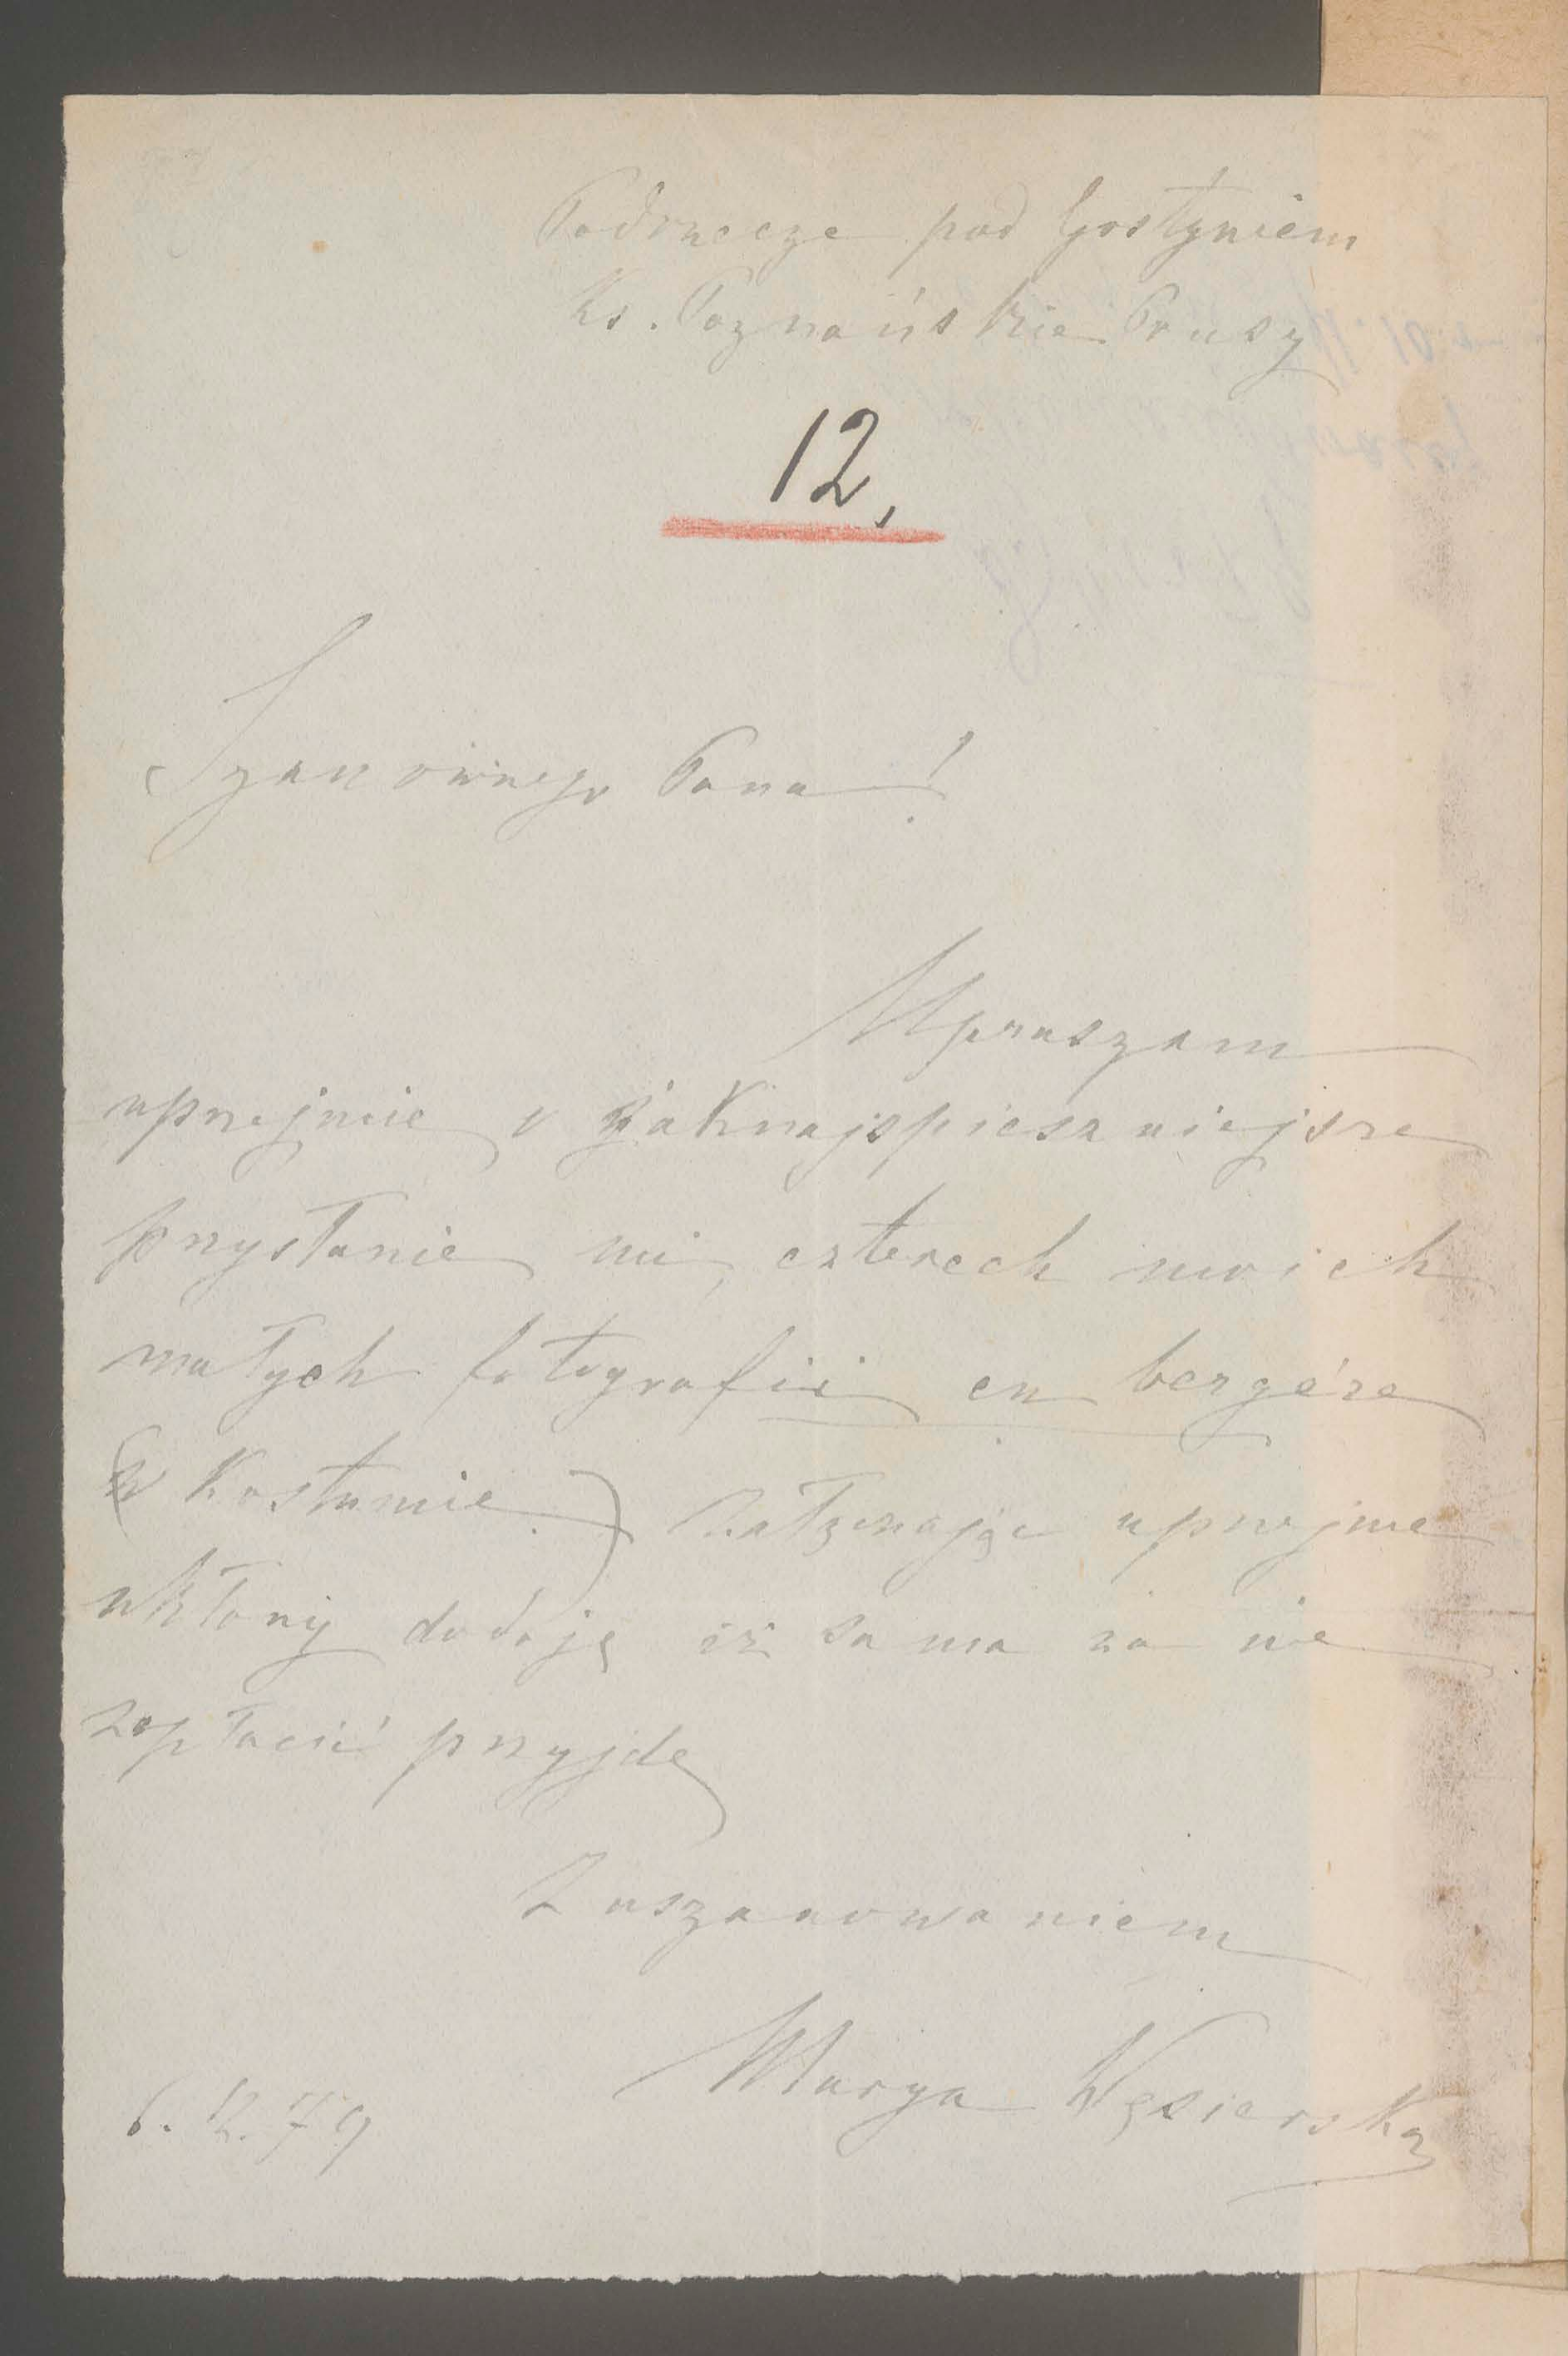 Podrzecze pod Gostyniem
Ks. Poznańskie Prusy
12,
Szanownego Pana!
Upraszam
uprzejmie o jaknajspieszniejsze
przysłanie mi czterech moich
małych fotografii en bergére
(w Kostumie) Załączając uprzejme
ukłony dodaję iż sama za nie
zapłacić przyjdę
Z uszanowaniem
Marya Węsierska
6. 12. 79